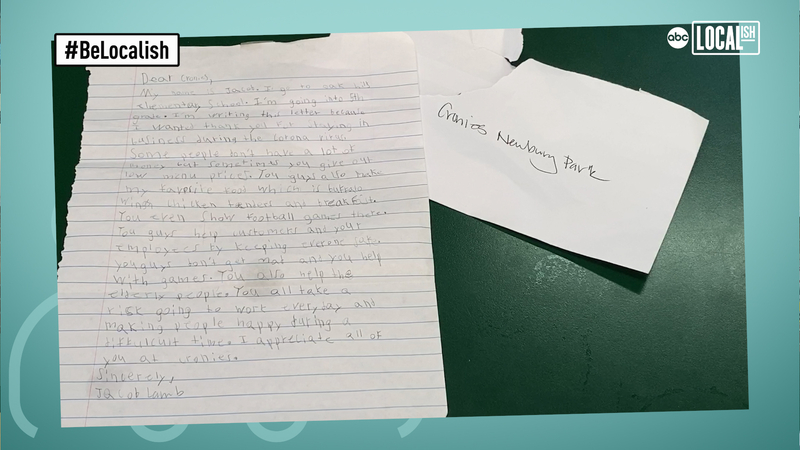 #BeLocalish
abc LOCALISH
Dear Cronies,
My name is Jacob. I go to oak hills
elementary School. I'm going into 5th
grade. I'm writing this letter because
I wanted thank you for staying in
business during the corona virus.
Some people don't have a lot of
money but sometimes you give out
low menu price. You guys also make
my favorite food which is buffalo
wings, chicken tenders and breakfast.
You even show football games there.
You guys help customers and your
employees by keeping everone safe.
you guys don't get mad and you help
with games. You also help the
elderly people. You all take a
risk going to work everyday and
making people happy during a
difficult time. I appreciate all of
you at cronies.
Sincerely,
Jacob Lamb
Cronies Newbury Park